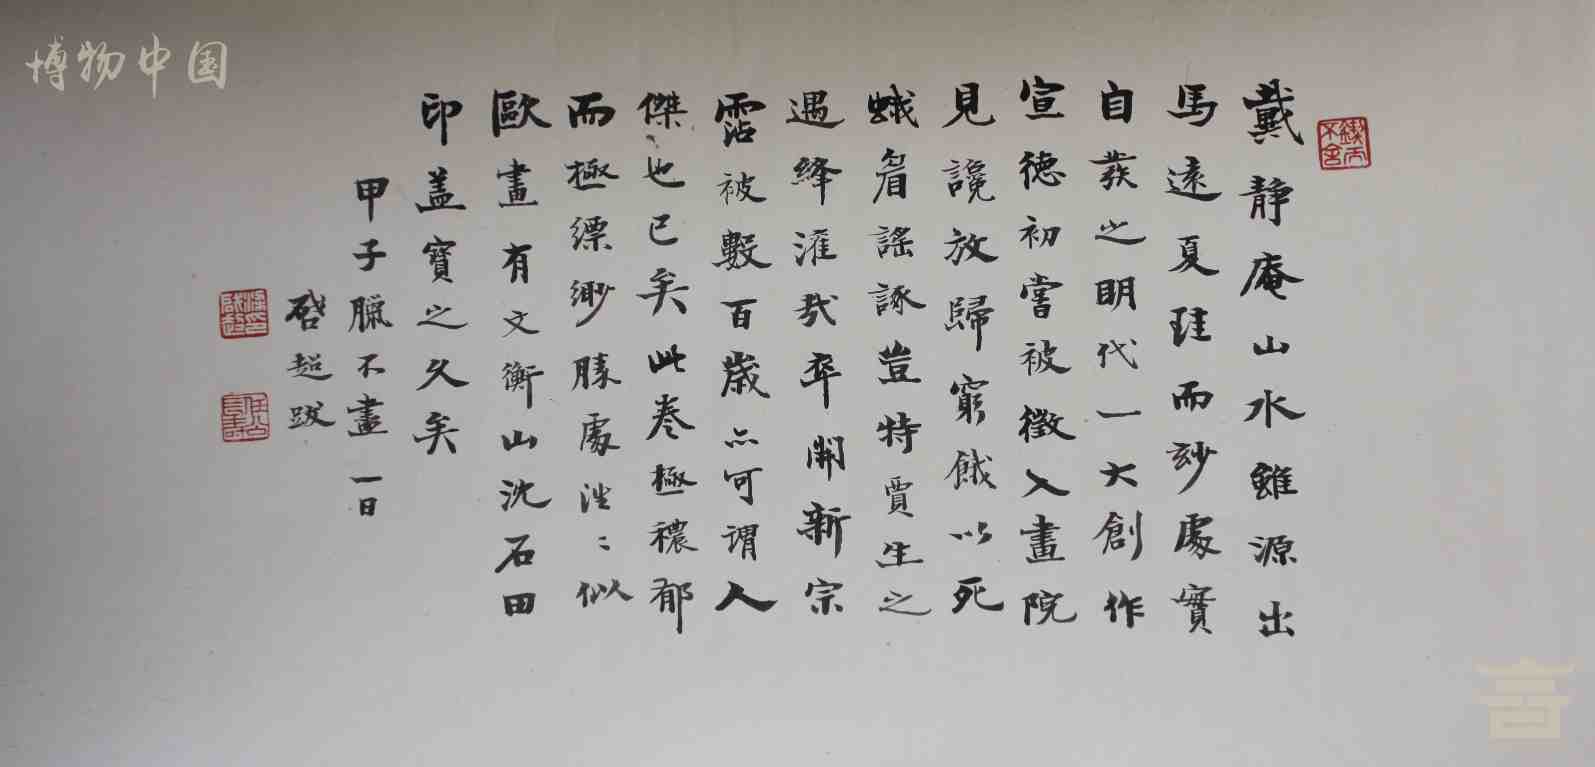 博物中国
鍥而不舍
戴靜庵山水雖源出
馬遠夏珪而妙處實
自發之明代一大創作
宣德初嘗被徵入畫院
見讒放歸窮餓以死
蛾眉謠諑豈特賈生之
遇絳灌哉卒開新宗
霑被數百歲亦可謂人
傑也已矣此卷極穠郁
而極縹緲勝處往往似
歐畫有文衡山沈石田
印蓋寶之久矣
甲子臘不盡一日
啓超跋